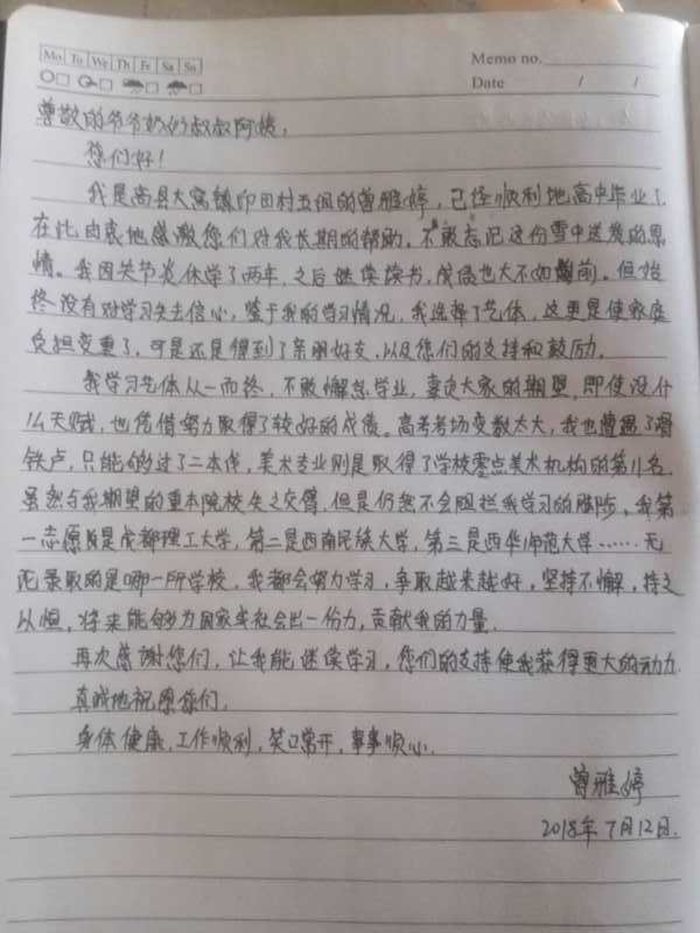 Mo Tu We Th Fr Sa Su
Memo no.
Date / /
尊敬的爷爷奶奶叔叔阿姨:
您们好!
我是高县大窝镇印田村五组的曾雅婷,已经顺利地高中毕业了.
在此由衷地感激您们对我长期的帮助。不敢忘记这份雪中送炭的恩
情。我因关节炎休学了两年,之后继续读书,成绩也大不如前。但始
终没有对学习失去信心,鉴于我的学习情况,我选择了艺体,这更是使家庭
负担变重了,可是还是得到了亲朋好友,以及您们的支持和鼓励。
我学习艺体从一而终,不敢懈怠学业,辜负大家的期望,即使没什
么天赋,也凭借努力取得了较好的成绩。高考考场变数太大,我也遭遇了滑
铁卢,只能够过了二本线,美术专业则是取得了学校零点美术机构的第11名.
虽然与我期望的重本院校失之交臂,但是仍然不会阻拦我学习的脚步,我第
一志愿是成都理工大学,第二是西南民族大学,第三是西华师范大学……无
论录取的是哪一所学校,我都会努力学习,争取越来越好,坚持不懈,持之
以恒,将来能够为国家或社会出一份力,贡献我的力量.
再次感谢您们,让我能继续学习,您们的支持使我获得更大的动力.
真诚地祝愿您们,
身体健康,工作顺利,笑口常开,事事顺心.
曾雅婷
2018年7月12日.